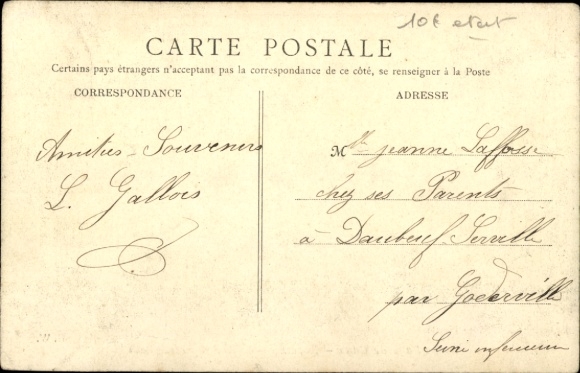 10€ etat
CARTE POSTALE
Certains pays étrangers n'acceptant pas la correspondance de ce côté, se renseigner à la Poste
CORRESPONDANCE
ADRESSE
Amitiés - Souvenirs
L. Gallois
Mlle Jeanne Laffosse
chez ses Parents
à Daubeuf-Serville
par Goderville
Seine inferieure